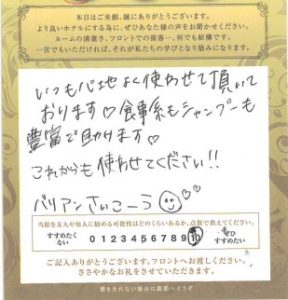 本日はご来館、誠にありがとうございます。
より良いホテルにする為に、ぜひあなた様の声をお聞かせください。
ルームの清潔さ、フロントでの接客…、何でも結構です。
一言でもいただければ、それが私たちの学びとなり励みになります。
いつも心地よく使わせて頂いて
おります♡食事系もシャンプーも
豊富で助けます♡
これからも使わせてください!!
バリアンさいこーう
当館を友人や知人に勧める可能性はどのくらいあるか、点数で教えてください。
すすめたく
ない
0 1 2 3 4 5 6 7 8 9 10
ぜひ
すすめたい
ご記入ありがとうございます。フロントへお渡しください。
ささやかなお礼をさせていただきます。
書ききれない場合は裏面へどうぞ